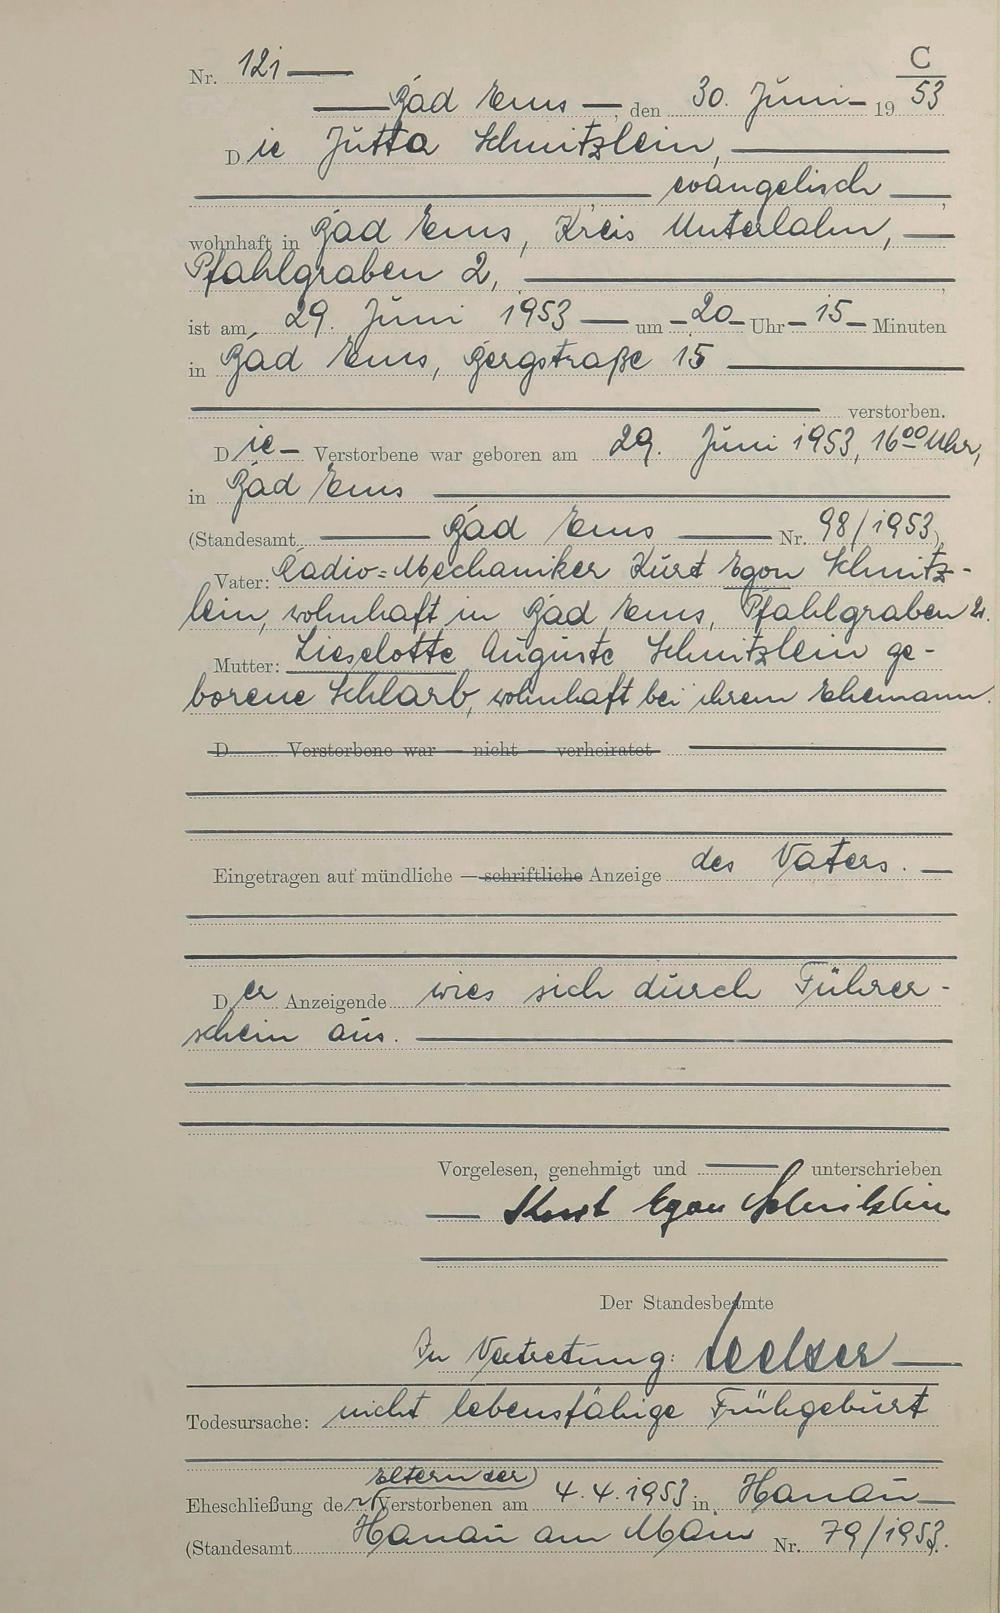 Nr. 121
C
Bad Ems, den 30. Juni 19 53
Die Jutta Schnitzlein,
evangelisch,
wohnhaft in Bad Ems, Kreis Unterlahn,
Pfahlgraben 2,
ist am 29. Juni 1953 um 20 Uhr 15 Minuten
in Bad Ems, Bergstraße 15
verstorben.
Die Verstorbene war geboren am 29. Juni 1953, 16⁰⁰ Uhr,
in Bad Ems
(Standesamt Bad Ems Nr. 98/1953)
Vater: Radio=Mechaniker Kurt Egon Schnitz-
lein, wohnhaft in Bad Ems, Pfahlgraben 2.
Mutter: Lieselotte Auguste Schnitzlein ge-
borene Schlarb, wohnhaft bei ihrem Ehemann.
D Verstorbene war — nicht — verheiratet
Eingetragen auf mündliche — schriftliche Anzeige des Vaters.
Der Anzeigende wies sich durch Führer-
schein aus.
Vorgelesen, genehmigt und unterschrieben
Kurt Egon Schnitzlein
Der Standesbeamte
In Vertretung:
Todesursache: nicht lebensfähige Frühgeburt
Eltern der
Eheschließung der Verstorbenen am 4.4.1953 in Hanau
(Standesamt Hanau am Main Nr. 79/1953).